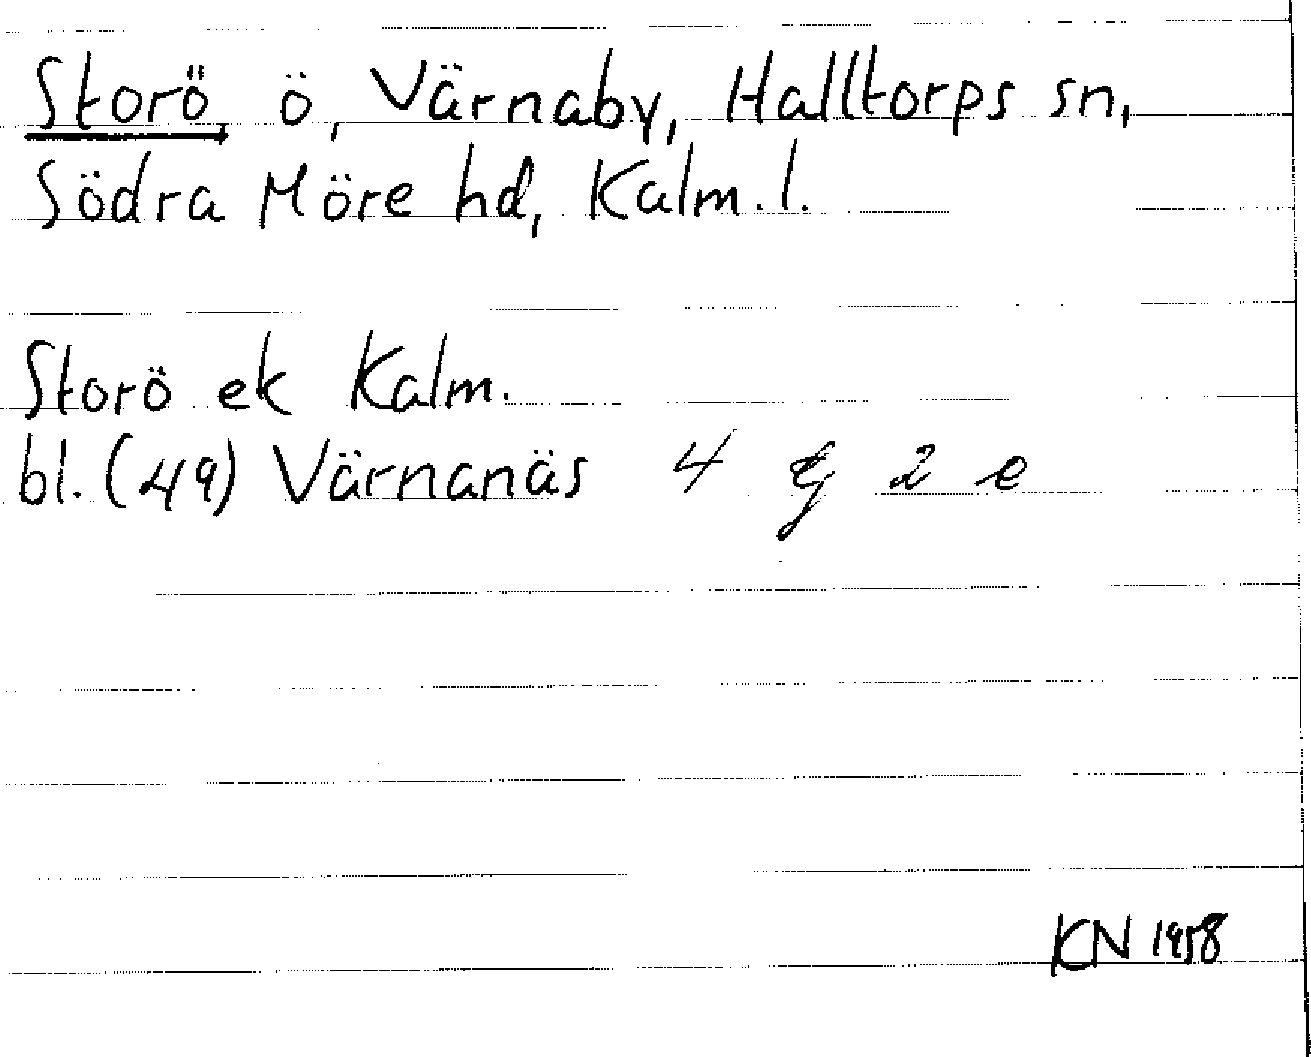 Storö, ö, Värnaby, Halltorps sn,
Södra Möre hd, Kalm. l.
Storö ek Kalm.
bl. (49) Värnanäs 4 G 2 e
KN 1958